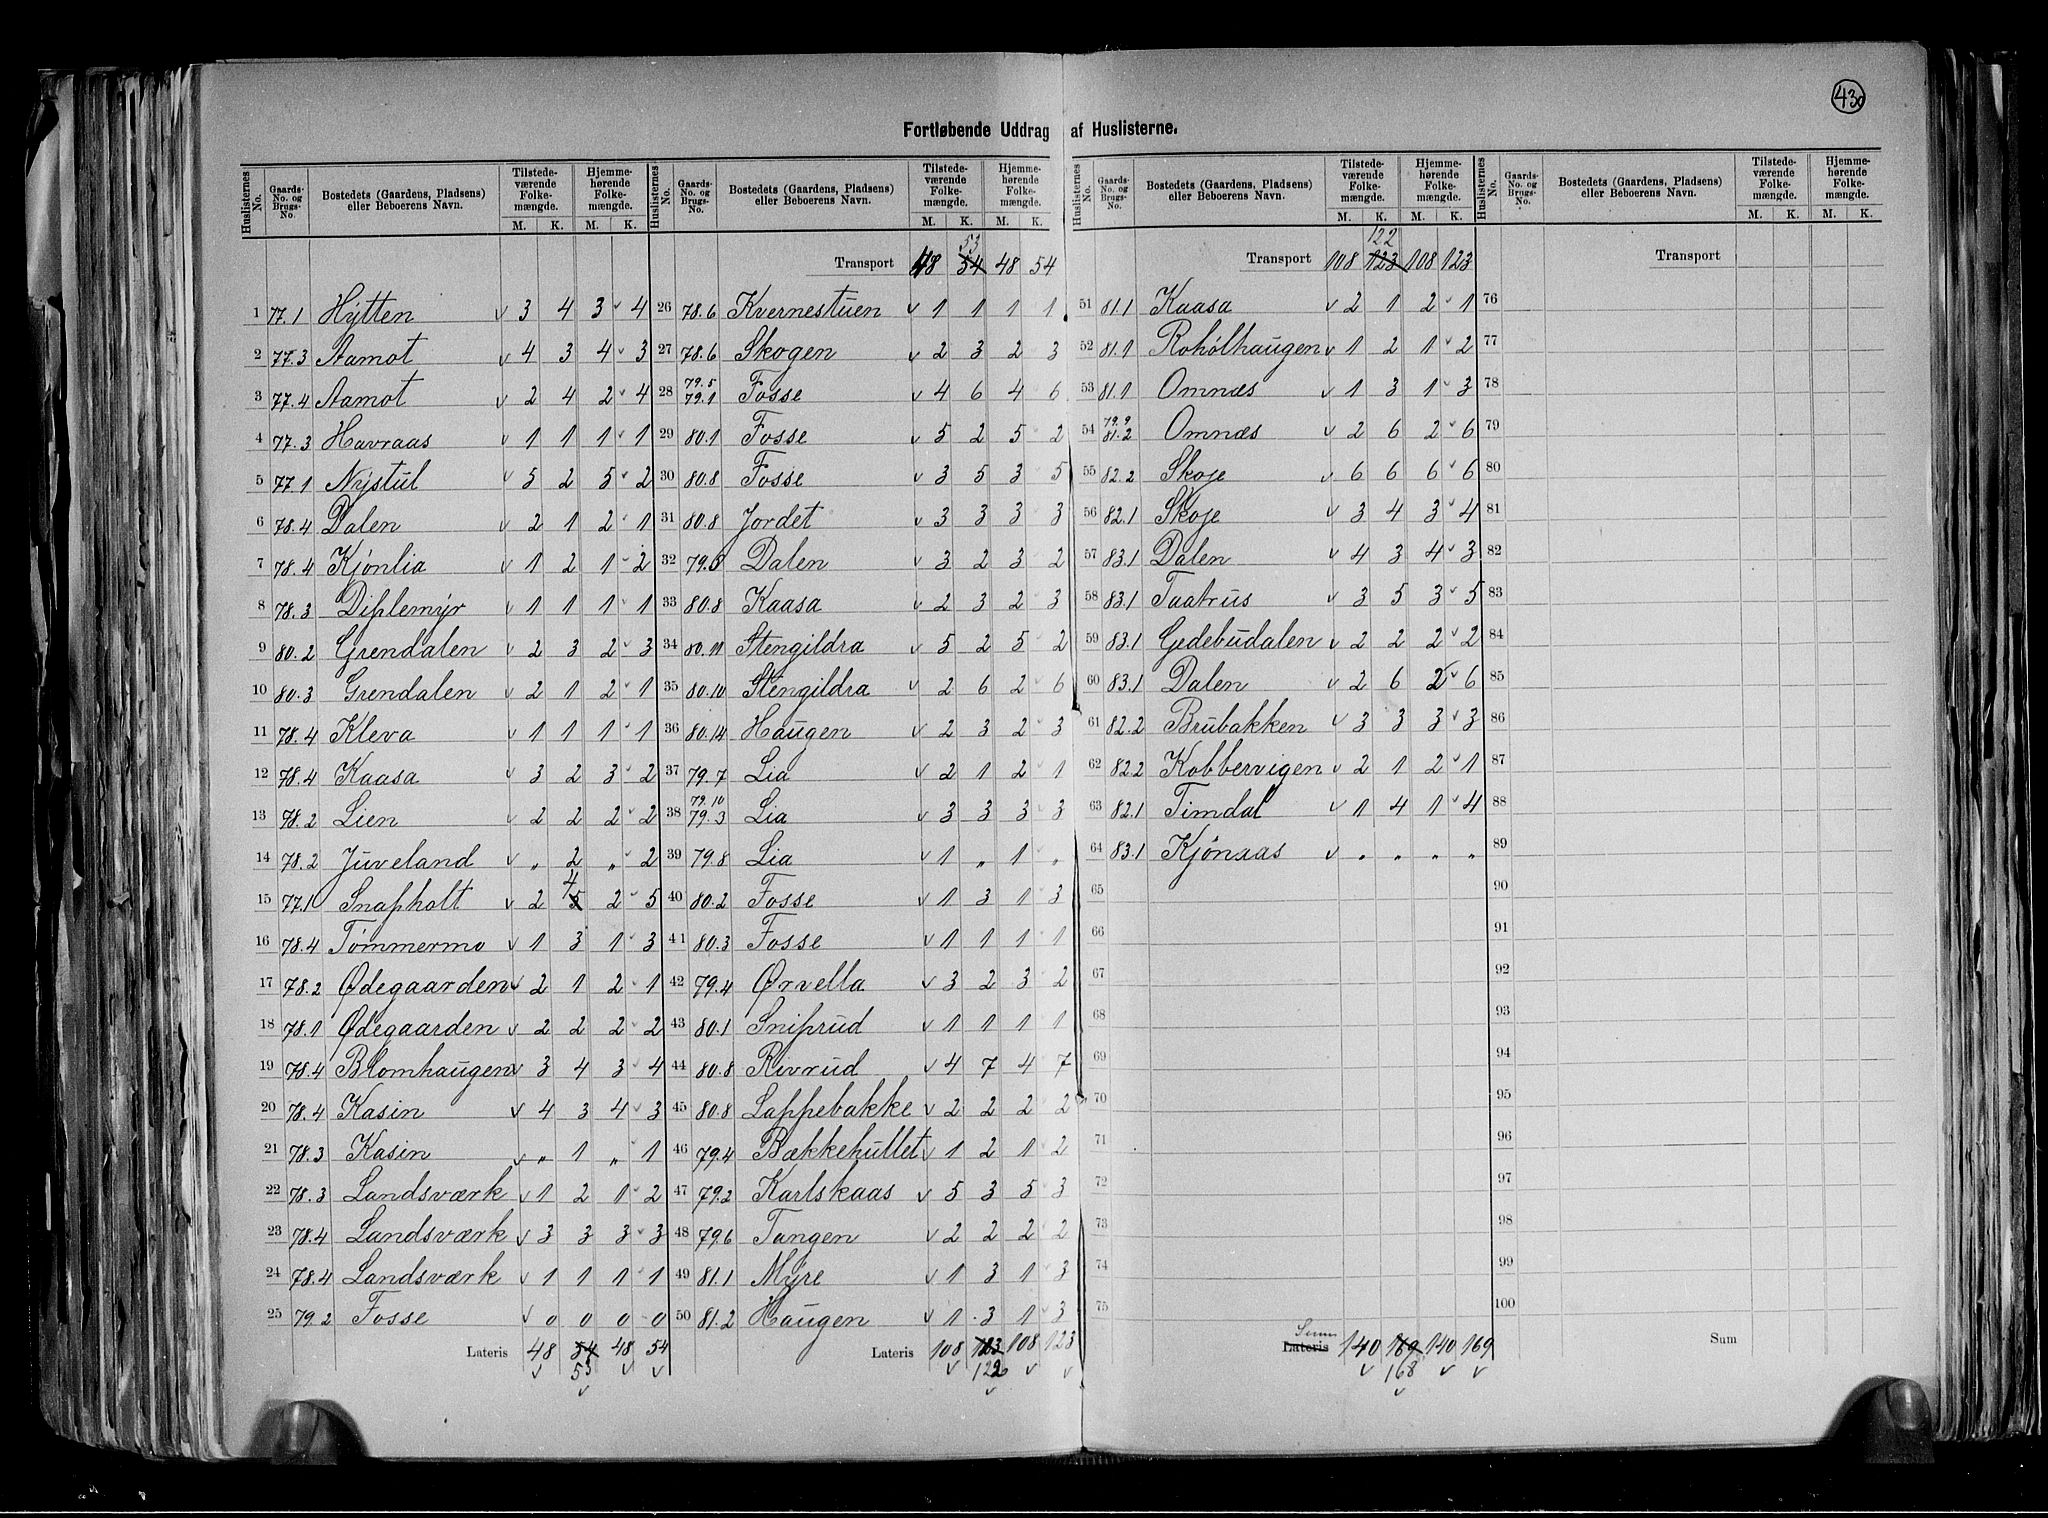 43
Fortløbende Uddrag af Huslisterne.
Huslisternes No. Gaards- No. og Brugs- No. Bostedets (Gaardens, Pladsens) eller Beboerens Navn. Tilstede- værende Folke- mængde. M. K. Hjemme- hørende Folke- mængde. M. K.
1 77.1 Hytten v 3 4 3 v 4
2 77.3 Aamot v 4 3 4 v 3
3 77.4 Aamot v 2 4 2 v 4
4 77.3 Havraas v 1 1 1 v 1
5 77.1 Nystul v 5 2 5 v 2
6 78.4 Dalen v 2 1 2 v 1
7 78.4 Kjønlia v 1 2 1 v 2
8 78.3 Diplemyr v 1 1 1 v 1
9 80.2 Grendalen v 2 3 2 v 3
10 80.3 Grendalen v 2 1 2 v 1
11 78.4 Kleva v 1 1 1 v 1
12 78.4 Kaasa v 3 2 3 v 2
13 78.2 Lien v 2 2 2 v 2
14 78.2 Juveland v „ 2 „ v 2
15 77.1 Snapholt v 2 5 4 2 v 5
16 78.4 Tømmermo v 1 3 1 v 3
17 78.2 Ødegaarden v 2 1 2 v 1
18 78.1 Ødegaarden v 2 2 2 v 2
19 78.4 Blomhaugen v 3 4 3 v 4
20 78.4 Kasin v 4 3 4 v 3
21 78.3 Kasin v „ 1 „ v 1
22 78.3 Landsværk v 1 2 1 v 2
23 78.4 Landsværk v 3 3 3 v 3
24 78.4 Landsværk v 1 1 1 v 1
25 79.2 Fosse v 0 0 0 0
Lateris 48 54 48 54
v 53 v v
v
Huslisternes No. Gaards- No. og Brugs- No. Bostedets (Gaardens, Pladsens) eller Beboerens Navn. Tilstede- værende Folke- mængde. M. K. Hjemme- hørende Folke- mængde. M. K.
53
Transport 48 54 48 54
26 78.6 Kvernestuen v 1 1 1 1
27 78.6 Skogen v 2 3 2 3
28 79.5 79.1 Fosse v 4 6 4 6
29 80.1 Fosse v 5 2 5 2
30 80.8 Fosse v 3 5 3 5
31 80.8 Jordet v 3 3 3 3
32 Dalen v 3 2 3 2
33 80.8 Kaasa v 2 3 2 3
34 80.11 Stengildra v 5 2 5 2
35 80.10 Stengildra v 2 6 2 6
36 80.14 Haugen v 2 3 2 3
37 79.7 Lia v 2 1 2 1
38 79.10 79.3 Lia v 3 3 3 3
39 79.8 Lia v 1 „ 1 „
40 80.2 Fosse v 1 3 1 3
41 80.3 Fosse v 1 1 1 1
42 79.4 Ørvella v 3 2 3 2
43 80.1 Sniprud v 1 1 1 1
44 80.8 Rivrud v 4 7 4 7
45 80.8 Lappebakke v 2 2 2 2
46 79.4 Bækkehullet v 1 2 1 2
47 79.2 Karlskaas v 5 3 5 3
48 79.6 Tangen v 2 2 2 2
49 81.1 Myre v 1 3 1 3
50 81.2 Haugen v 1 3 1 3
Lateris 108 123 108 123
v 122 v v
v
Huslisternes No. Gaards- No. og Brugs- No. Bostedets (Gaardens, Pladsens) eller Beboerens Navn. Tilstede- værende Folke- mængde. M. K. Hjemme- hørende Folke- mængde. M. K.
122
Transport 108 123 108 123
51 81.1 Kaasa v 2 1 2 v 1
52 81.1 Rohólhaugen v 1 2 1 v 2
53 81.1 Omnæs v 1 3 1 v 3
54 79.9 81.2 Omnæs v 2 6 2 v 6
55 82.2 Skoje v 6 6 6 v 6
56 82.1 Skoje v 3 4 3 v 4
57 83.1 Dalen v 4 3 4 v 3
58 83.1 Taatrus v 3 5 3 v 5
59 83.1 Gedebudalen v 2 2 2 v 2
60 83.1 Dalen v 2 6 2 v 6
61 82.2 Brubakken v 3 3 3 v 3
62 82.2 Kobbervigen v 2 1 2 v 1
63 82.1 Timdal v 1 4 1 v 4
64 83.1 Kjønaas v „ „ „ „
65
66
67
68
69
70
71
72
73
74
75
Sum
Lateris 140 169 140 169
v 168 v v
v
Huslisternes No. Gaards- No. og Brugs- No. Bostedets (Gaardens, Pladsens) eller Beboerens Navn. Tilstede- værende Folke- mængde. M. K. Hjemme- hørende Folke- mængde. M. K.
Transport
76
77
78
79
80
81
82
83
84
85
86
87
88
89
90
91
92
93
94
95
96
97
98
99
100
Sum